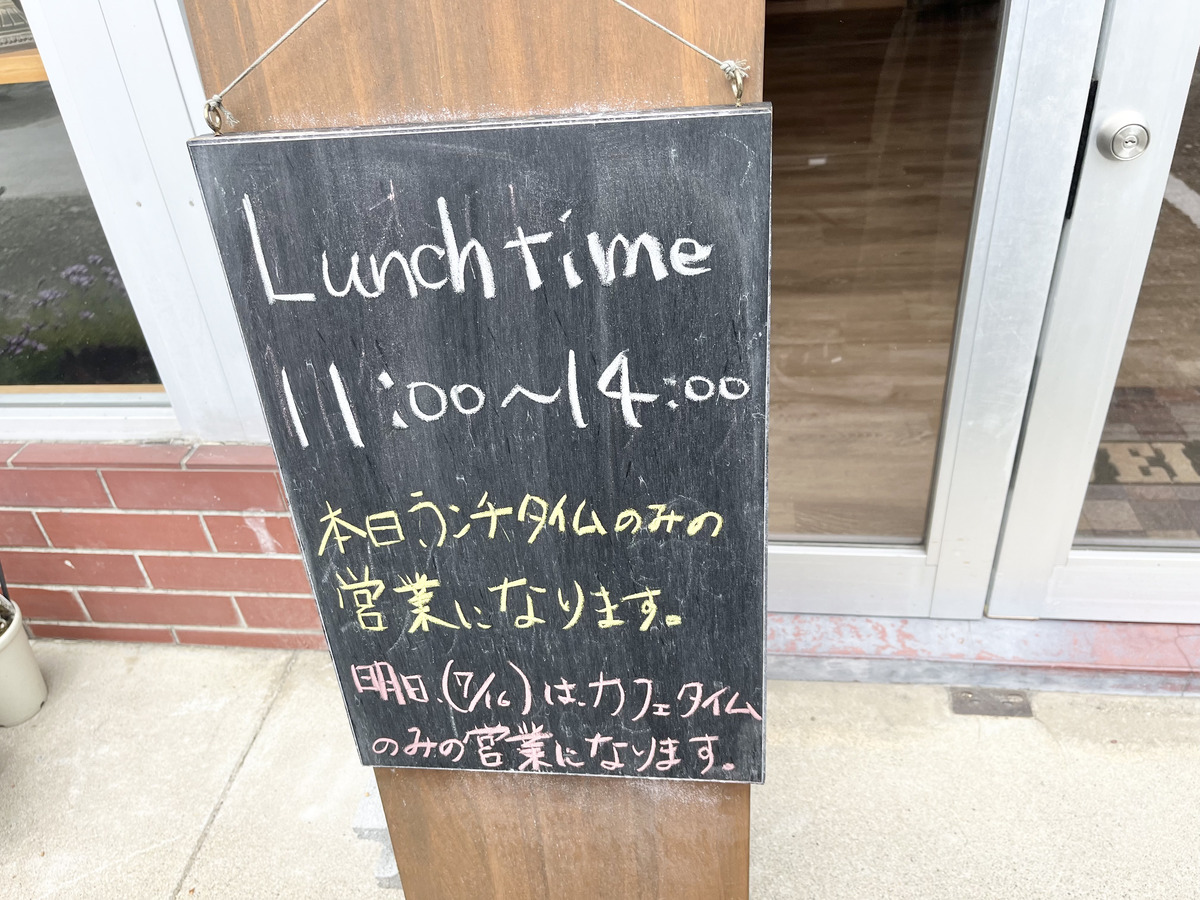 Lunch time
11:00～14:00
本日ランチタイムのみの
営業になります。
明日、(7/16)は、カフェタイム
のみの営業になります。